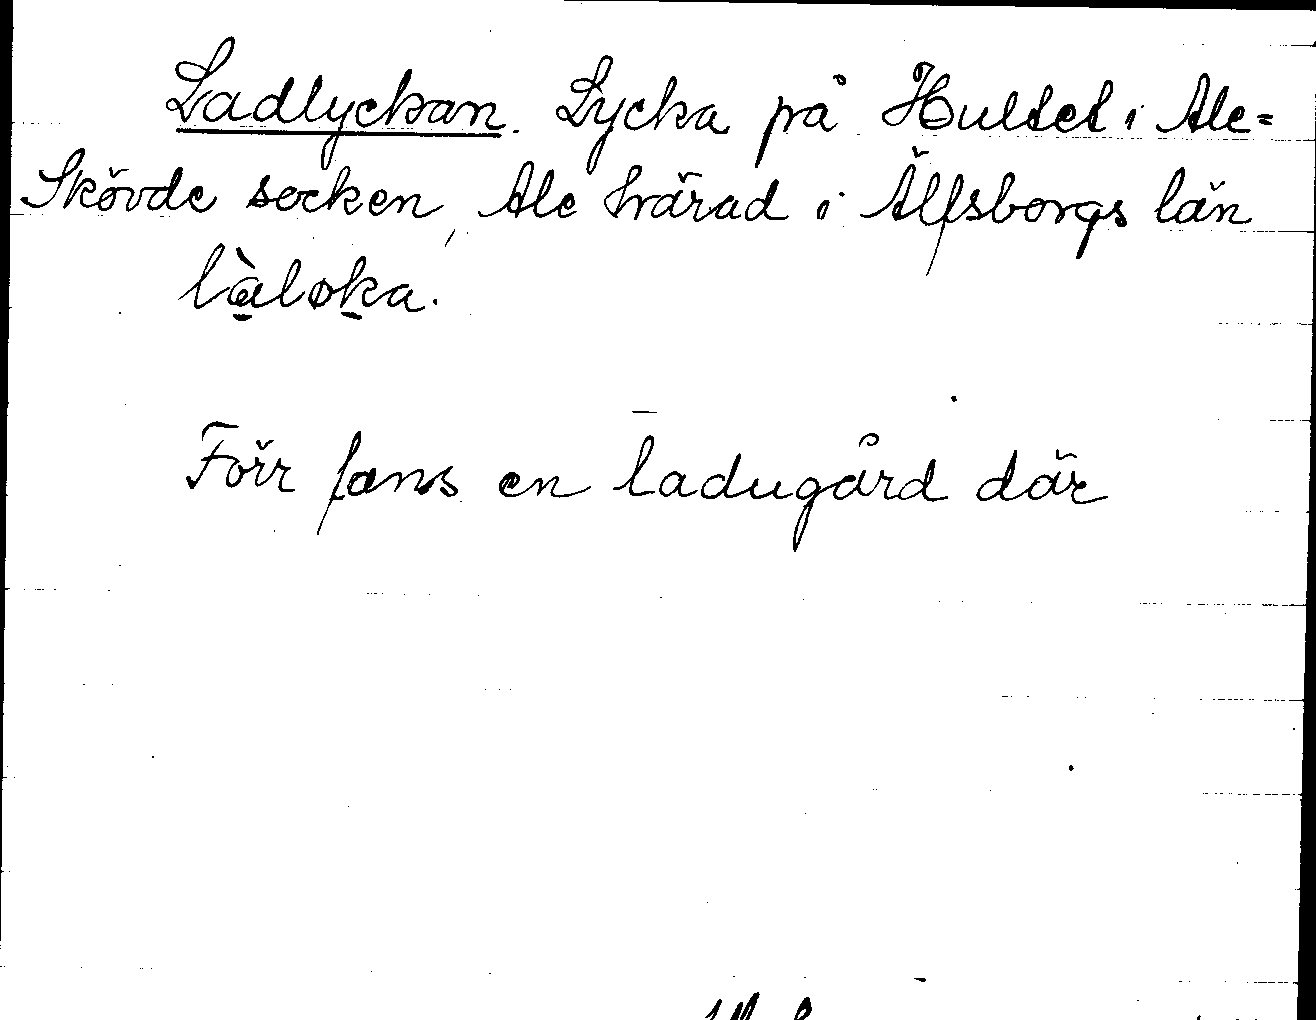 Ladlyckan. Lycka på Hultet i Ale=
Skövde socken, Ale härad i Älfsborgs län
làloka.
Förr fans en ladugård där